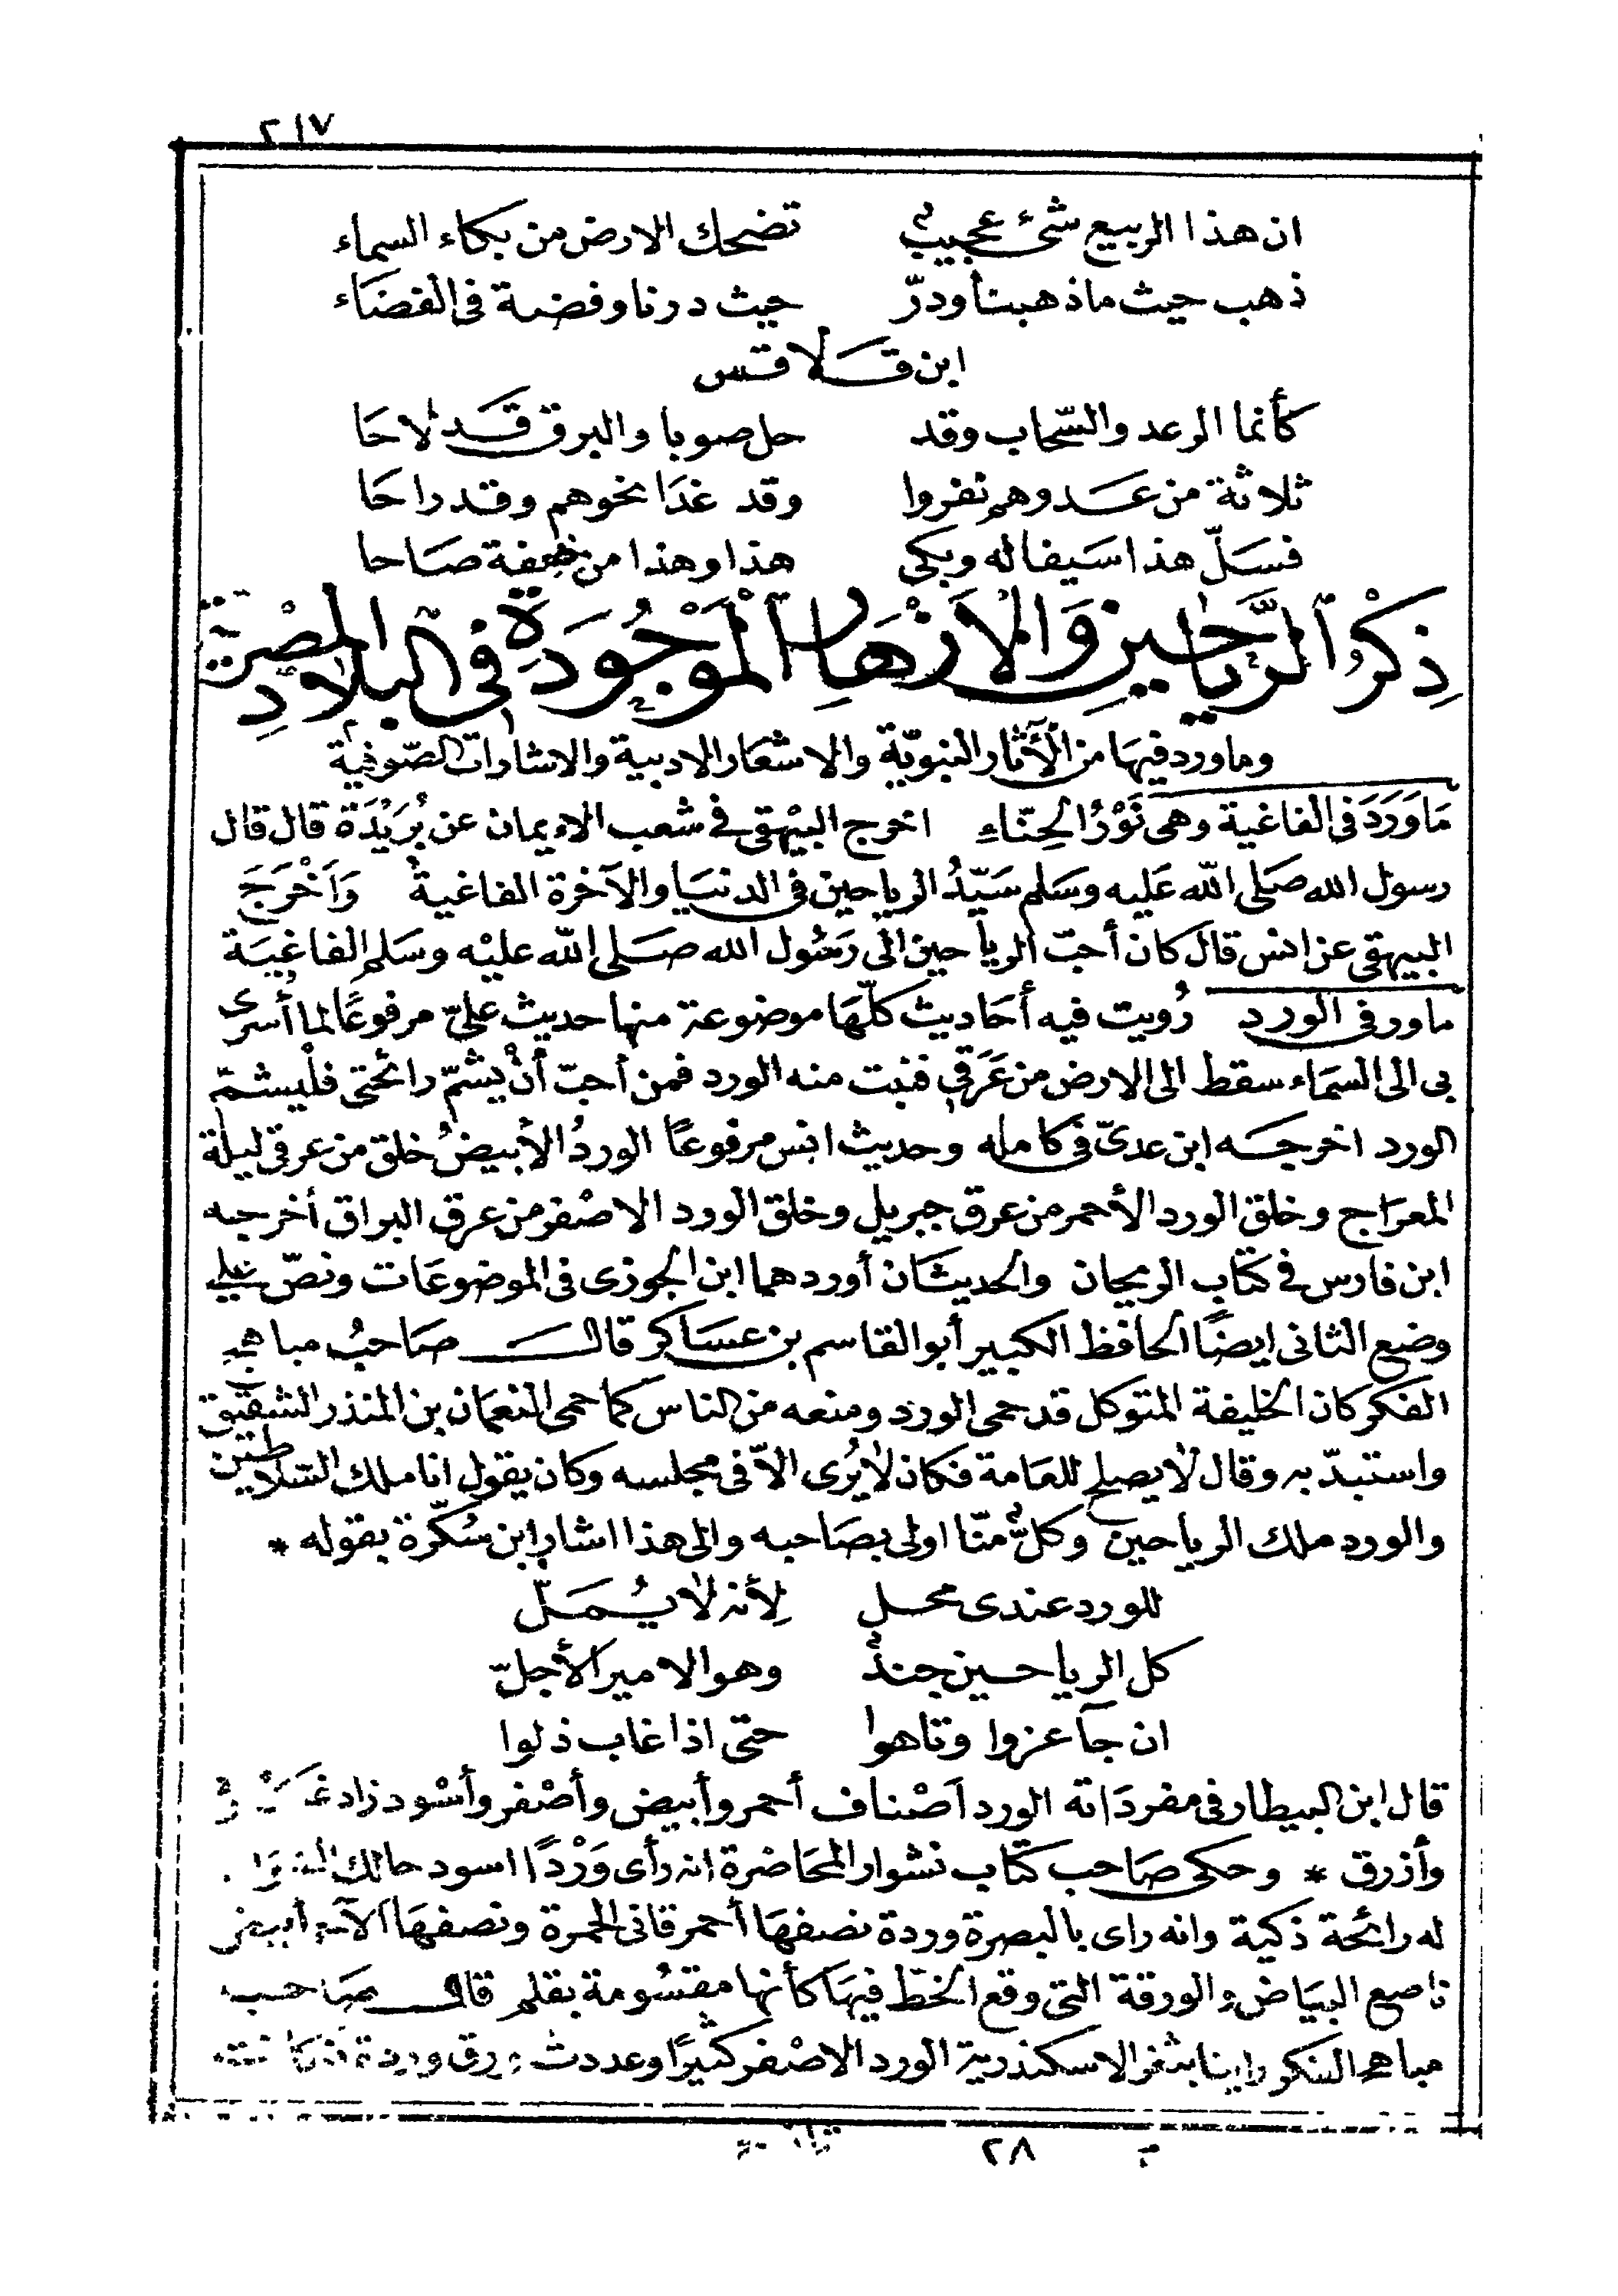 ٢١٧
ان هذا الربيع شئ عجيب تضحك الارض من بكاء السماء
ذهب حيث ماذهبنا ودرّ حيث درنا وفضة فى الفضاء
ابن قلاقس
كأنما الرعد والسّحاب وقد حل صوبا والبرق قد لاحَا
ثلاثة من عدوهم نفروا وقد غدَا نحوهم وقد راحَا
فسَلّ هذا سَيفا له وبكى هذا وهذا من خيفة صَاحا
ذِكْرُ الرَّيَاحِينِ وَالْاَزْهَارِ الْمَوْجُودَةِ فِى الْبِلَادِ الْمِصْرِيَّة
وما ورد فيهَا من الأثار النبويّة والاشعَار الادبية والاشارات الصّوفية
مَا وَرَدَ فى الفاغية وهى نَوْرُ الحِنّاءِ اخرج البيْهقى فى شعب الايمان عن بُرَيْدَة قال قال
رسول الله صَلى الله عَليه وسَلم سَيّدُ الرياحين فى الدنيَا والآخرة الفاغية وَاَخْرَجَ
البيهقى عن انس قال كان أحبّ الرياحين الى رَسُول الله صَلى الله عليْه وسَلم الفاغيَة
ماورد فى الورد رُويت فيه أحَاديث كلّهَا موضوعة منها حديث علىّ مرفوعًا لما أسرى
بى الى السمَاء سقط الى الارض من عَرَقى فنبت منه الورد فمن أحبّ أنْ يشمّ رائحتى فلْيشمّ
الورد اخرجه ابن عدىّ فى كامله وحديث انس مرفوعًا الوردُ الأبيضُ خلق من عرقى ليلة
المعرَاج وخلق الورد الأحمر من عرق جبريل وخلق الورد الاصْفر من عرق البراق أخرجه
ابن فارس فى كتاب الريحان والحديثَان أوردهما ابن الجوزى فى الموضوعَات ونصّ على
وضع الثانى ايضًا الحافظ الكبير أبو القاسم بن عسَاكر قال صَاحبُ مباهج
الفكر كان الخليفة المتوكل قد حمى الورد ومنعه من الناس كما حمى النعمَان بن المنذر الشقيق
واستبدّ به وقال لَا يصلح للعَامة فكان لَا يُرى الاّ فى مجلسه وكان يقول انا ملك السّلاطين
والورد ملك الرياحين وكلٌّ منّا اولى بصَاحبه والى هذا اشار ابن سُكّرة بقوله *
للورد عندى محل لِأنه لَا يُمَلّ
كل الرياحين جندٌ وهو الامير الأجلّ
ان جآ عزوا وتاهوا حتى اذا غاب ذلوا
قال ابن البيطار فى مفردَاته الورد اَصْناف أحمر وأبيض وأصْفر وأسْود زاد
وأزرق * وحكى صَاحب كتاب نشوار المحَاضرة انه رأى وَرْدًا اسود حالك
له رائحة ذكية وانه راى بالبصرة وردة نصفهَا أحمر قانى الحمرة ونصفهَا الآخر أبيض
ناصع البيَاض والورقة التى وقع الخطّ فيهَا كأنها مقسُومة بقلم قال صَاحب
مباهج الفكر راينا بثغر الاسكندرية الورد الاصْفر كثيرًا وعددت ورق وردة
٢٨